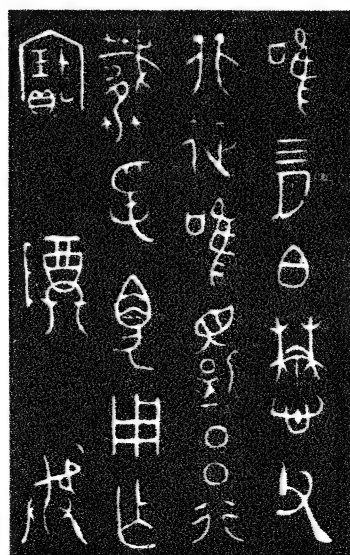 唯四月白懋父
北征唯還吕行
捷孚用乍
寶尊彝